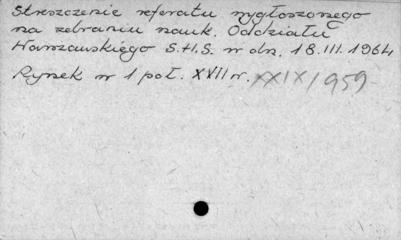 Streszczenie referatu wygłoszonego
na zebraniu nauk. Oddziału
Warszawskiego S.H.S. w dn. 18.III.1964
Rynek w 1 poł. XVII w. XXIX/1959